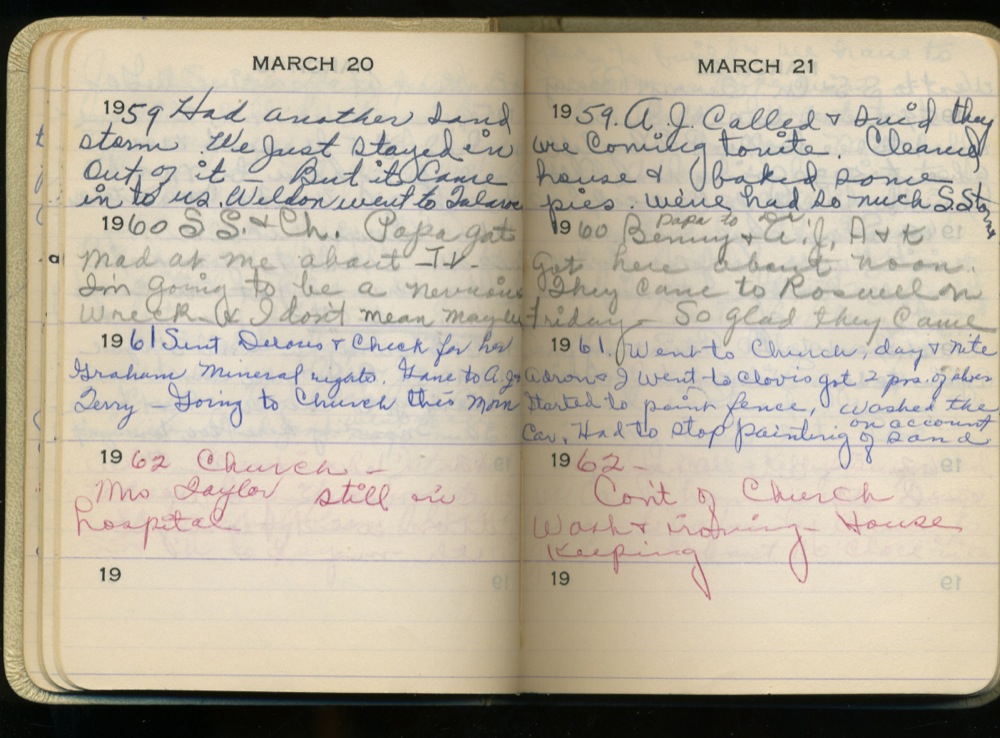 MARCH 20
1959 Had another sand
storm. We Just stayed in
out of it But it Came
in to us. Weldon went to
1960 S S. & Ch. Papa got
mad at me about T.V.-
I'm going to be a nervious
wreck & I don't mean maybe
1961 Sent Deloris & Check for her
Graham Mineral rights. Gave to A.J. &
Terry - Going to Church this morn
1962 Church -
Mrs Taylor still in
hospital
19
MARCH 21
1959. A. J. Called & said they
are Coming tonite. Cleaned
house & baked some
pies. we've had so much S. Storms
Papa to Dr.
1960 Benny & A. J, A & K
Got here about noon.
They came to Roswell on
Friday - So glad they Came
1961. Went to Church, day & nite
I went to Clovis got 2 prs. of shoes
Started to paint fence, washed the
Car. Had to stop painting on account
of sand
1962 -
Con't of Church
Wash & ironing - House
Keeping
19